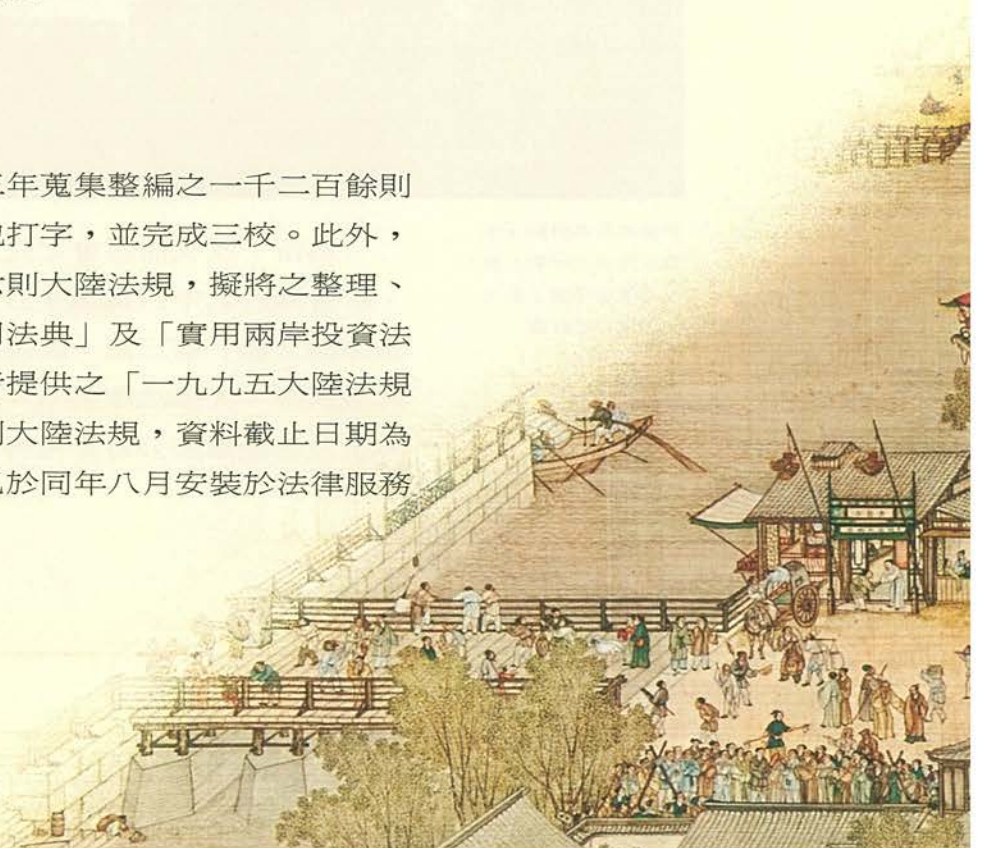 年蒐集整編之一千二百餘則
打字，並完成三校。此外，
則大陸法規，擬將之整理、
法典」及「實用兩岸投資法
提供之「一九九五大陸法規
大陸法規，資料截止日期為
於同年八月安裝於法律服務